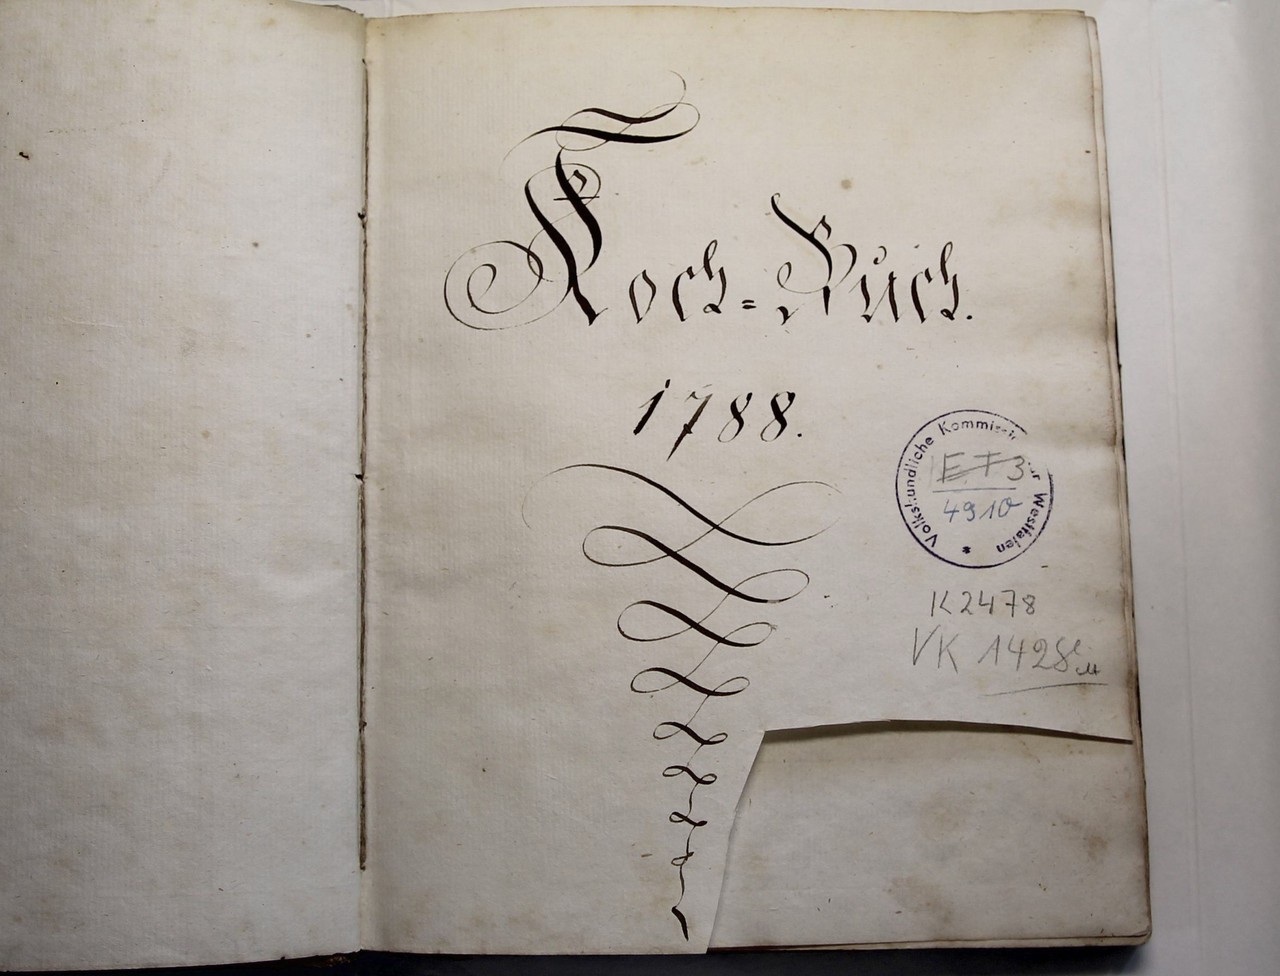 Koch=Buch.
1788.
Volkskundliche Kommission für Westfalen *
E T 3
4910
K2478
VK 1428